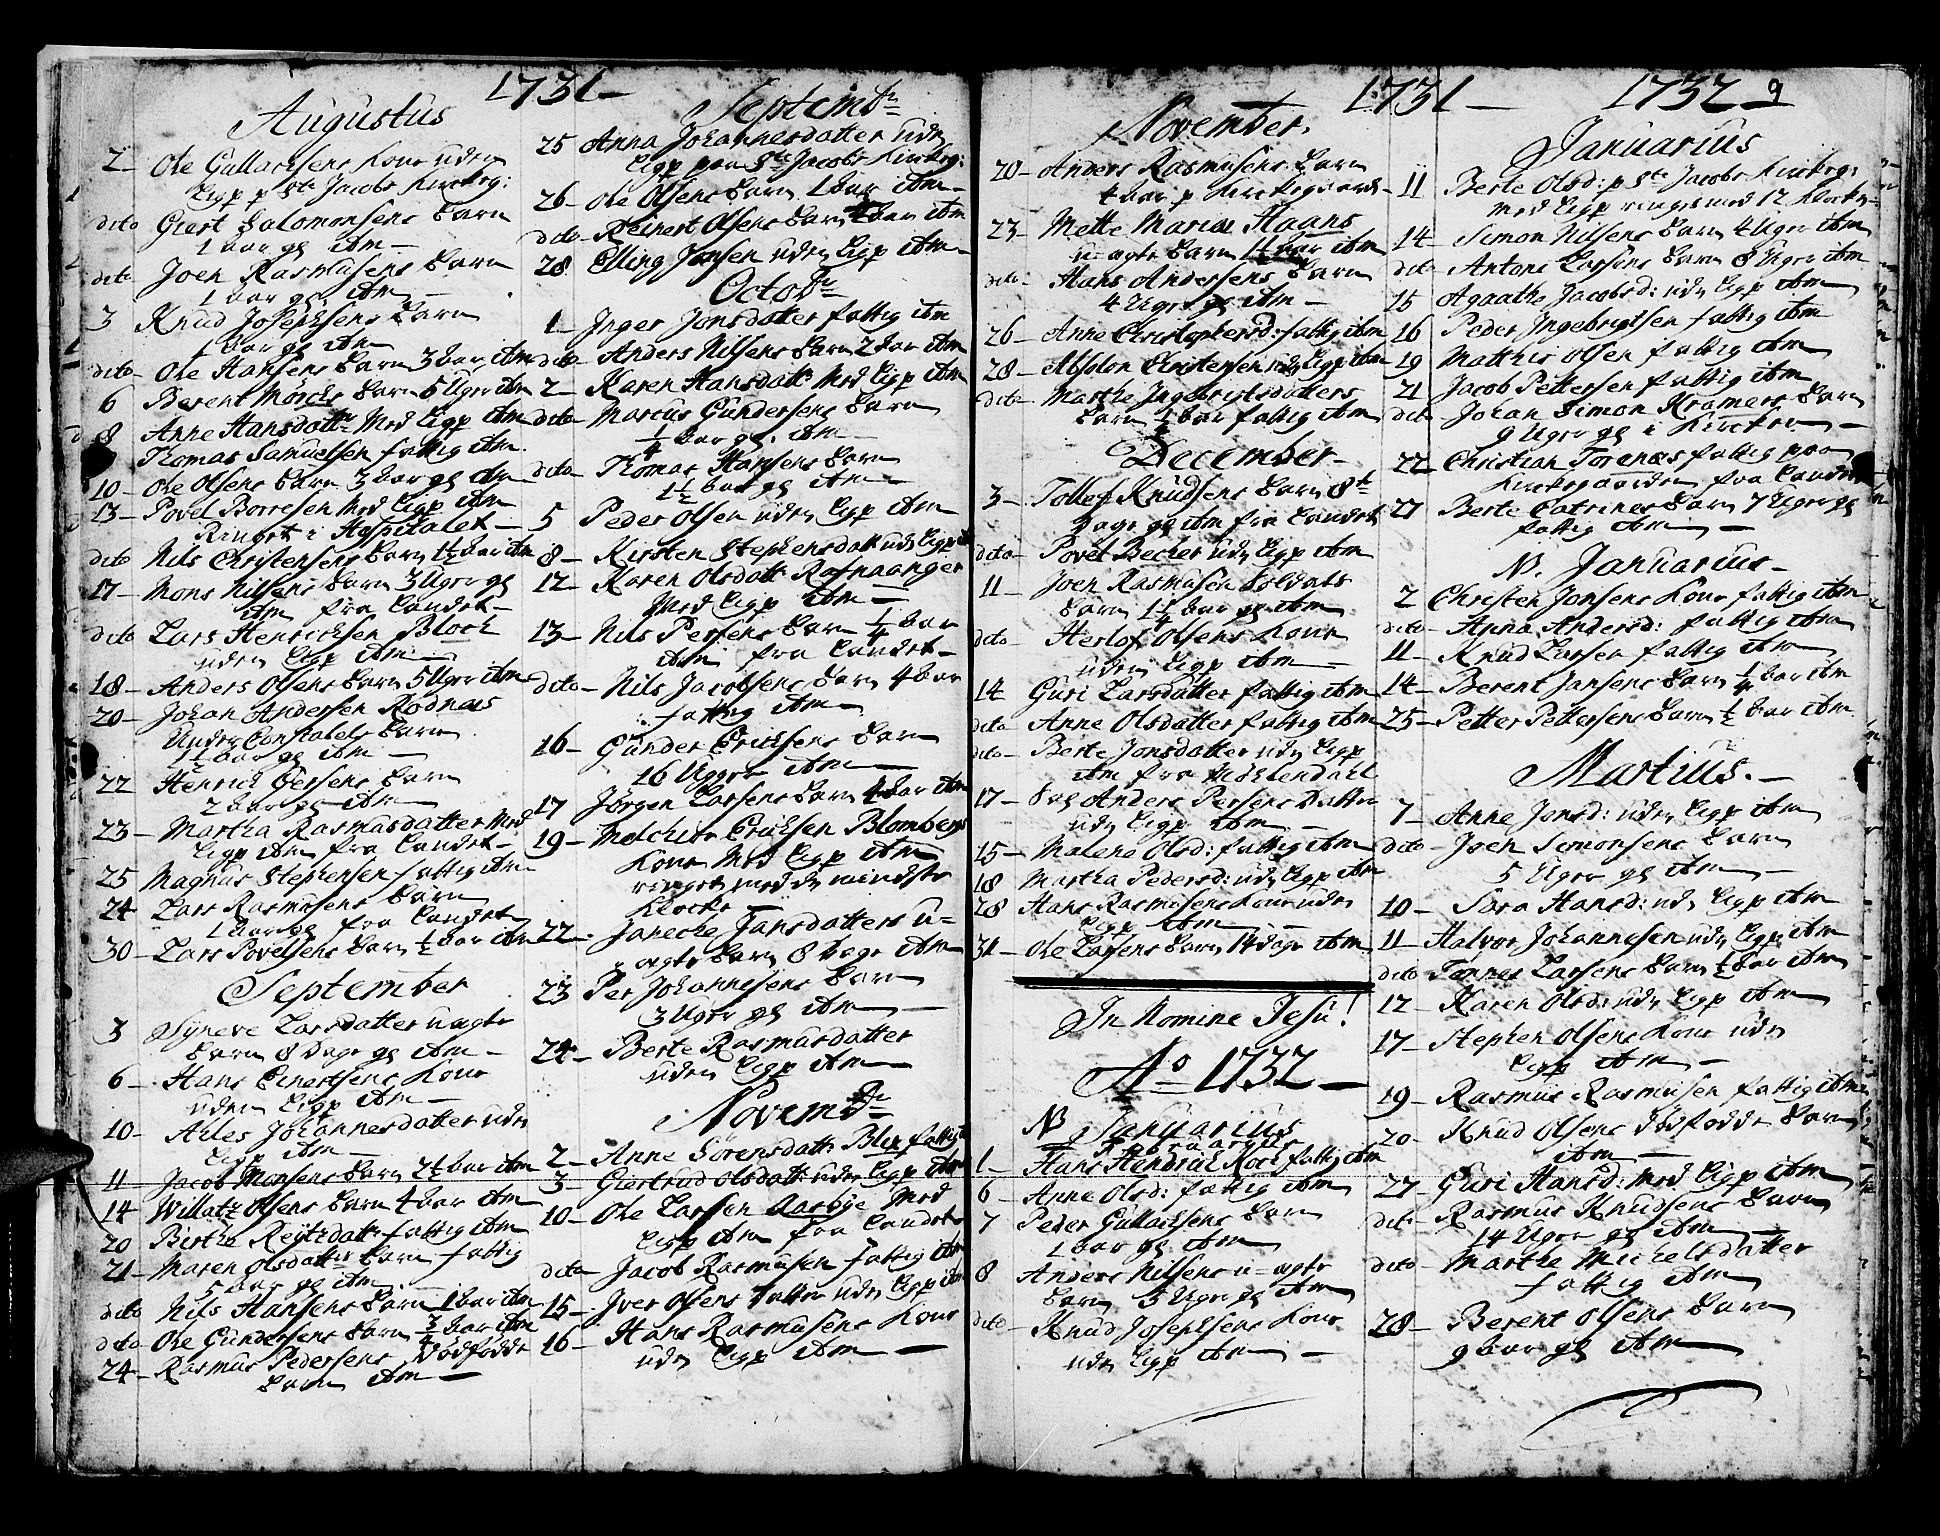 1731
Augustus
2 - Ole Gullachsens Kone uden
Ligp p Ste Jacobs Kirckeg:
dito Giert Salomonsens Barn
1 Aar gl ibm -
dito Joen Rasmusens Barn
1 Aar gl ibm -
3 Knud Josephsens Barn
1 Aar gl ibm
dito - Ole Hansens Barn 3 Aar ibm
6 Berent Mörchs Barn 5 Uger ibm
8 Anne Hansdattr Med Ligp ibm
Thomas Samuelsen fattig ibm.
10 - Ole Olsens Barn 3 Aar gl ibm
13 - Povel Borresen Med Ligp ibm
Ringet i Hospitalet -
dito Nils Christensens Barn 1½ Aar ibm
17 - Mons Nilsens Barn 3 Uger gl
ibm fra Landet -
dito Lars Henrichsen Bloch
uden Ligp ibm
18 - Anders Olsens Barn 5 Uger ibm
20 - Johan Andersen Rodnæs
Under Constabels Barn
1½ Aar gl ibm -
22 Henrich Gersens Barn
2 Aar gl ibm -
23 - Martha Rasmusdatter Med
Ligp ibm fra Landet -
25 Magnus Stephensen fattig ibm
24 Lars Rasmusens Barn
1 Aar gl fra Landet
30 - Lars Povelsens Barn ½ Aar ibm
September
3 Syneve Larsdatter uægte
Barn 8 Dage gl ibm -
6 - Hans Einertsens Kone
uden Ligp ibm -
10 - Ailes Johannesdatter uden
Ligp ibm -
11 Jacob Monsens Barn 2½ Aar ibm
14 Willatz Olsens Barn 4 Aar ibm
20 Birthe Reytzdattr fattig ibm
21 - Maren Olsdattrs Barn fattig
5 Aar gl ibm -
dito Nils Hansens Barn 1 Aar ibm
dito - Ole Gundersens Barn ¾ Aar ibm
24 - Rasmus Pedersens Dödfödde
Barn ibm -
Septembr
25 Anna Johannesdatter uden
Ligp paa Ste Jacobs Kirckeg:
26 - Ole Olsens Barn 1 Aar ibm -
dito - Reinert Olsens Barn Aar ibm
28 Elling Jansen uden Ligp ibm -
Octobr
1 - Inger Jonsdatter fattig ibm
dito - Anders Nilsens Barn 2 Aar ibm
2 - Karen Hansdattr Med Ligp ibm
dito Marcus Gundersens Barn
¼ Aar gl. ibm -
dito - Thomas Hansens Barn
1½ Aar gl ibm -
5 Peder Olsen uden Ligp ibm
8 - Kirsten Stephensdattr udn Ligp ib
12 - Karen Olsdattr Rafnaanger
Med Ligp ibm -
13 - Nils Persens Barn ¼ Aar
ibm fra Landet -
dito - Nils Jacobsens Barn 4 Aar
fattig ibm -
16 - Gunder Ericksens Barn
16 Uger ibm -
17 Jörgen Larsens Barn Aar ibm
19 - Melchior Ericksen Blombergs
Kone Med Ligp ibm
ringet med de mindste
Klocke -
22 - Janeche Jansdatters u=
ægte Barn 8 Dage ibm
23 Per Johannesens Barn
3 Uger gl ibm -
24 - Berte Rasmusdatter
uden Ligp ibm -
Novembr
2 - Anne Sörensdattr fattig
3 - Giertrud Olsdattr uden Ligp ibm
10 - Ole Larsen Aarböe Med
Ligp ibm fra Landet
dito - Jacob Rasmusen Fattig ibm
15 - Iver Olsens Datter uden Ligp ibm
16 - Hans Rasmusens Kone
uden Ligp ibm -
1731 -
November.
20 - Anders Rasmusens Barn
4 Aar p Kirckegaard -
23 - Mette Mariæ Haans
u-ægte Barn 1½ Aar ibm
dito - Hans Andersens Barn
4 Uger gl ibm -
26 - Anne Christophersd: fattig ibm
28 - Absolon Christensen udn Ligp ibm
dito - Marthe Ingebrigtsdatters
Barn ½ Aar fattig ibm
December -
3 - Tollef Knudsens Barn 8te
Dage gl ibm fra Landet
dito - Povel Becher udn Ligp ibm
11 - Joen Rasmusen Soldats
Barn 1¼ Aar gl ibm
dito - Herlof Olsens Kone
uden Ligp ibm -
14 Guri Larsdatter fattig ibm
dito Anne Olsdatter fattig ibm
dito - Berte Jonsdatter udn Ligp
ibm fra Möhlendahl
17 - Anders Persens Datter
udn Ligp ibm -
15 - Malene Olsd: fattig ibm
18 Martha Pedersd: udn Ligp ibm
28 Hans Rasmusens Kone uden
Ligp ibm -
31 - Ole Larsens Barn 14 Dage ibm
In Nomine Jesu!
Ao 1732 -
NB Januarius
Februarius
1 - Hans Hendrich Koch fattig ibm
6 - Anne Olsd: fattig ibm
7 Peder Gullachsens Barn
1 Aar gl ibm
8 Anders Nilsens u-ægte
Barn 3 Uger gl ibm
dito - Knud Josephsens Kone
uden Ligp ibm -
1732 - 9
Januarius
11 Berte Olsd: p Ste Jacobs Kirckeg:
Med Ligp ringet med 12 Klocker
14 - Simon Nilsens Barn 4 Uger ibm
dito Antoni Larsens Barn 8 Uger ibm
15 Agaathe Jacobsd: udn Ligp ibm
16 Peder Ingebrigtsen fattig ibm
19 Matthis Olsen fattig ibm
21 Jacob Pettersen fattig ibm
dito - Johan Simon Kramers Barn
9 Uger gl i Kircken -
22 Christian Torenæs fattig paa
Kirckegaarden fra Landet
27 Berte Catrines Barn 7 Uger gl
fattig ibm -
N. Januarius -
2 Christen Jonsens Kone fattig ibm
dito - Anna Andersd: fattig ibm
11 - Knud Larsen fattig ibm
14 - Berent Jansens Barn ¼ Aar ibm
25 - Petter Pettersens Barn ½ Aar ibm
Martius. -
7 - Anne Jonsd: uden Ligp ibm
dito - Joen Simonsens Barn
5 Uger gl ibm -
10 - Sara Hansd: udn Ligp ibm
11 - Halvor Johannesen udn Ligp ibm
dito Tönnes Larsens Barn ½ Aar ibm
12 - Karen Olsd: udn Ligp ibm
17 - Stephen Olsens Kone uden
Ligp ibm -
19 - Rasmus Rasmusen fattig ibm
20 - Knud Olsens Dödfödde Barn
ibm -
27 - Guri Hansd: Med Ligp ibm
dito - Rasmus Knudsens Barn
14 Uger gl ibm -
dito - Marthe Michelsdatter
fattig ibm
28 - Berent Olsens Barn
9 Aar gl ibm -